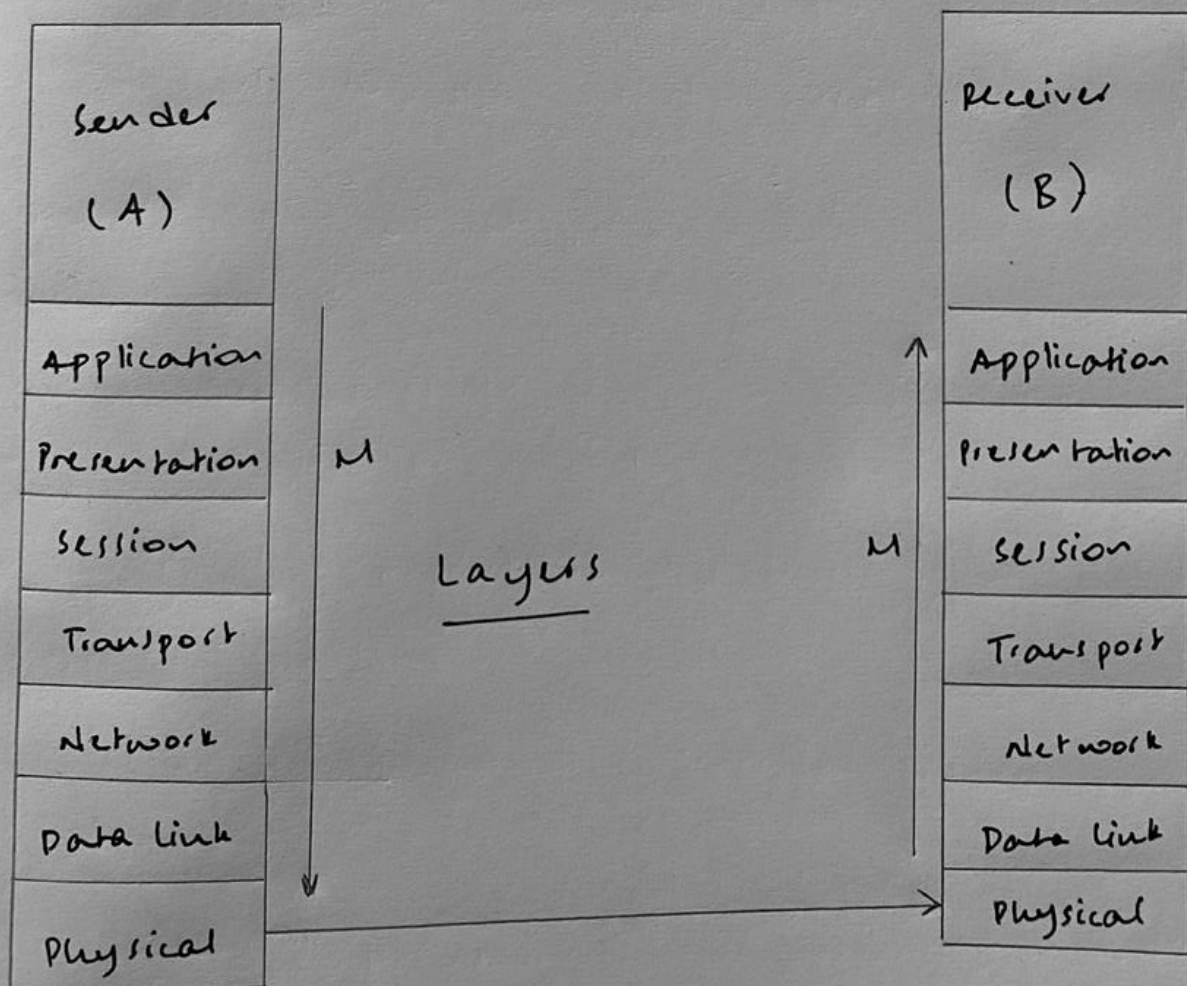 Sender
(A)
Application
Presentation
Session
Transport
Network
Data Link
Physical
M
Layers
M
Receiver
(B)
Application
Presentation
Session
Transport
Network
Data Link
Physical